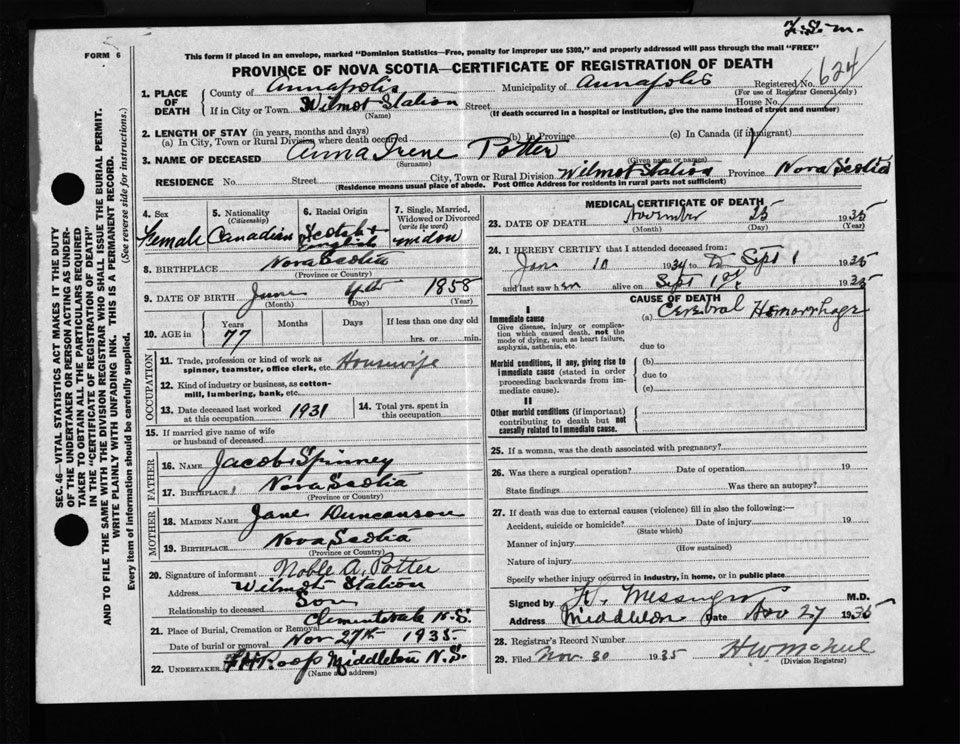 F.S.M.
FORM 6
This form if placed in an envelope, marked "Dominion Statistics—Free, penalty for improper use $300," and properly addressed will pass through the mail "FREE"
PROVINCE OF NOVA SCOTIA—CERTIFICATE OF REGISTRATION OF DEATH
624
1. PLACE OF DEATH
County of Annapolis Municipality of Annapolis Registered No.
(For use of Registrar General only)
If in City or Town Wilmot Station Street House No.
(Name) (If death occurred in a hospital or institution, give the name instead of street and number)
2. LENGTH OF STAY (in years, months and days)
(a) In City, Town or Rural Division where death occurred (b) In Province (c) In Canada (if immigrant)
3. NAME OF DECEASED Anna Irene Potter
(Surname) (Given name or names)
RESIDENCE No. Street City, Town or Rural Division Wilmot Station Province Nova Scotia
(Residence means usual place of abode. Post Office Address for residents in rural parts not sufficient)
SEC. 46—VITAL STATISTICS ACT MAKES IT THE DUTY
OF THE UNDERTAKER OR PERSON ACTING AS UNDER-
TAKER TO OBTAIN ALL THE PARTICULARS REQUIRED
IN THE "CERTIFICATE OF REGISTRATION OF DEATH"
AND TO FILE THE SAME WITH THE DIVISION REGISTRAR WHO SHALL ISSUE THE BURIAL PERMIT.
WRITE PLAINLY WITH UNFADING INK. THIS IS A PERMANENT RECORD.
Every item of information should be carefully supplied. (See reverse side for instructions.)
4. Sex
Female
5. Nationality
(Citizenship)
Canadian
6. Racial Origin
Scotch &
English
7. Single, Married,
Widowed or Divorced
(write the word)
widow
8. BIRTHPLACE Nova Scotia
(Province or County)
9. DATE OF BIRTH June 4th 1858
(Month) (Day) (Year)
10. AGE in
Years Months Days If less than one day old
77 hrs. or min.
OCCUPATION
11. Trade, profession or kind of work as
spinner, teamster, office clerk, etc. Housewife
12. Kind of industry or business, as cotton-
mill, lumbering, bank, etc.
13. Date deceased last worked
at this occupation 1931
14. Total yrs. spent in
this occupation
15. If married give name of wife
or husband of deceased
FATHER
16. NAME Jacob Spinney
17. BIRTHPLACE Nova Scotia
(Province or County)
MOTHER
18. MAIDEN NAME Jane Duncanson
19. BIRTHPLACE Nova Scotia
(Province or County)
20. Signature of informant Noble A. Potter
Address Wilmot Station
Relationship to deceased Son
21. Place of Burial, Cremation or Removal Clementsvale N.S.
Date of burial or removal Nov 27th 1935
22. UNDERTAKER F H Roop Middleton N.S.
(Name and address)
MEDICAL CERTIFICATE OF DEATH
23. DATE OF DEATH November 25 1935
(Month) (Day) (Year)
24. I HEREBY CERTIFY that I attended deceased from:
Jan 10 1934 to Sept 1 1935
and last saw her alive on Sept 1st 1935
CAUSE OF DEATH
I
Immediate cause
Give disease, injury or complica-
tion which caused death, not the
mode of dying, such as heart failure,
asphyxia, asthenia, etc.
(a) Cerebral Hemorrhage
due to
Morbid conditions, if any, giving rise to
immediate cause (stated in order
proceeding backwards from im-
mediate cause).
(b)
due to
(c)
II
Other morbid conditions (if important)
contributing to death but not
causally related to immediate cause.
25. If a woman, was the death associated with pregnancy?
26. Was there a surgical operation? Date of operation 19
State findings Was there an autopsy?
27. If death was due to external causes (violence) fill in also the following:—
Accident, suicide or homicide? Date of injury 19
(State which)
Manner of injury
(How sustained)
Nature of injury
Specify whether injury occurred in industry, in home, or in public place
Signed by Messenger M.D.
Address Middleton Date Nov 27 1935
28. Registrar's Record Number
29. Filed Nov. 30 1935
(Division Registrar)